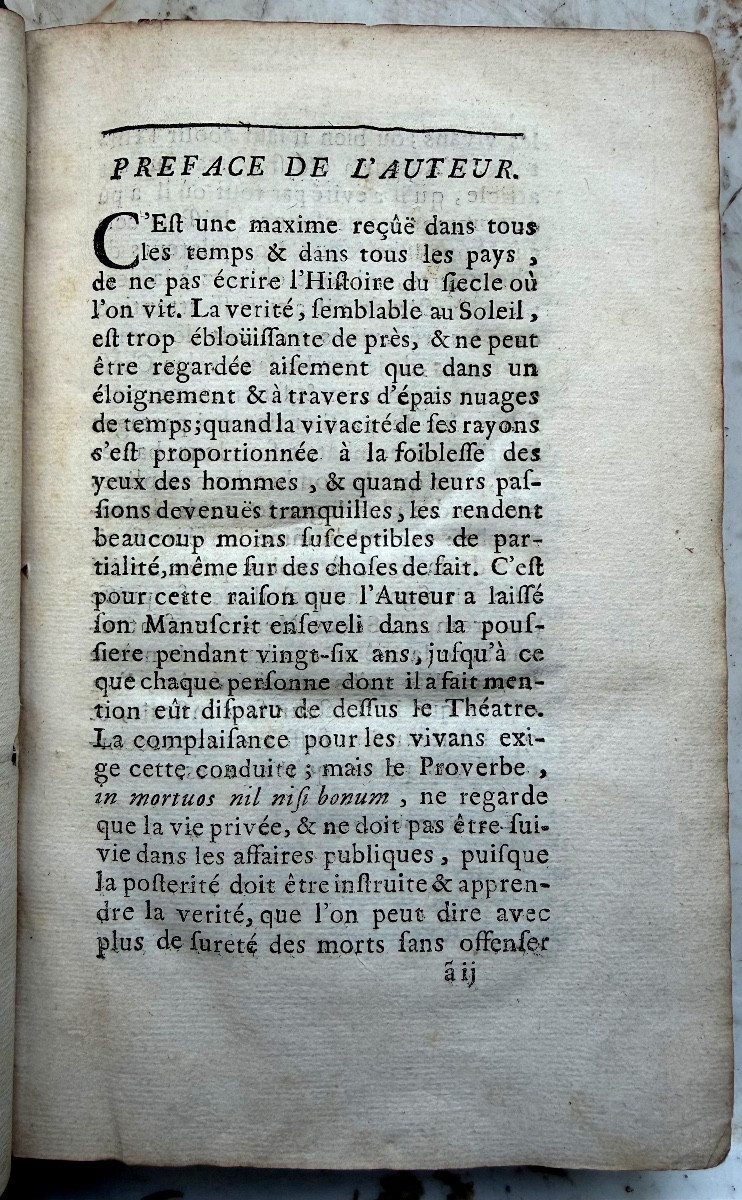 PREFACE DE L'AUTEUR.
C'Eſt une maxime reçûë dans tous
les temps & dans tous les pays,
de ne pas écrire l'Hiſtoire du ſiecle où
l'on vit. La verité, ſemblable au Soleil,
eſt trop éblоüiſſante de près, & ne peut
être regardée aiſement que dans un
éloignement & à travers d'épais nuages
de temps; quand la vivacité de ſes rayons
s'eſt proportionnée à la foibleſſe des
yeux des hommes, & quand leurs paſ-
ſions devenuës tranquilles, les rendent
beaucoup moins ſuſceptibles de par-
tialité, même ſur des choſes de fait. C'eſt
pour cette raiſon que l'Auteur a laiſſé
ſon Manuſcrit enſeveli dans la pouſ-
ſiere pendant vingt-ſix ans, juſqu'à ce
que chaque perſonne dont il a fait men-
tion eût diſparu de deſſus le Théatre.
La complaiſance pour les vivans exi-
ge cette conduite; mais le Proverbe,
in mortuos nil niſi bonum, ne regarde
que la vie privée, & ne doit pas être ſui-
vie dans les affaires publiques, puiſque
la poſterité doit être inſtruite & appren-
dre la verité, que l'on peut dire avec
plus de ſureté des morts ſans offenſer
ã ij